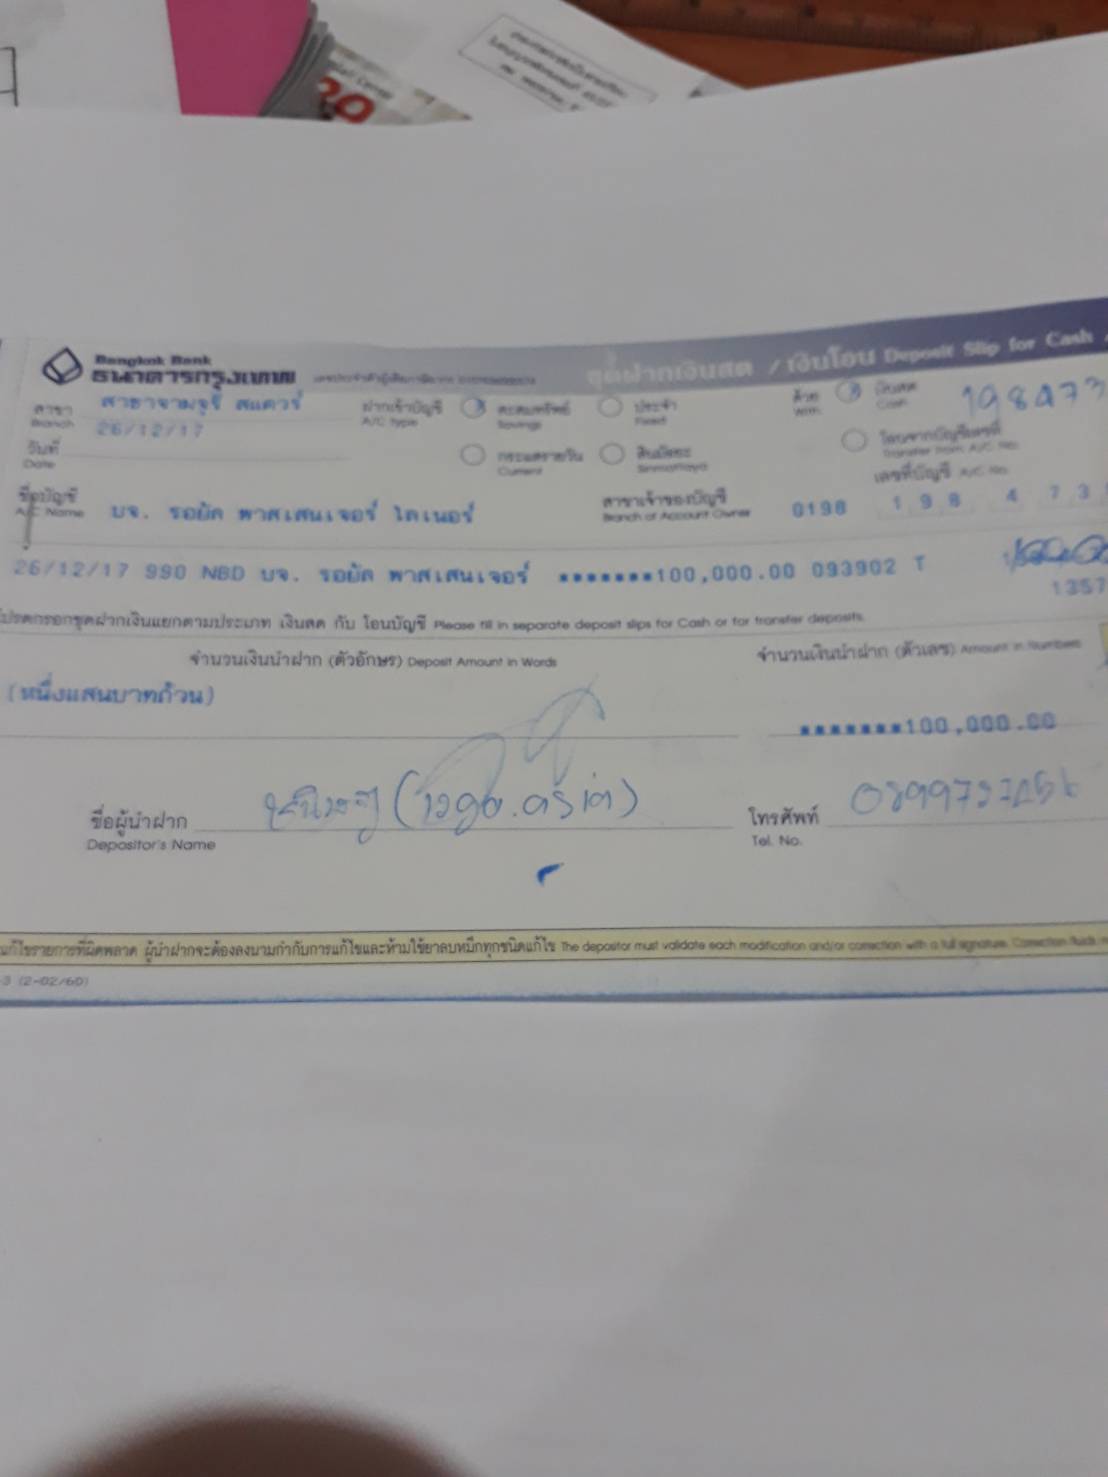 Bangkok Bank
ธนาคารกรุงเทพ
ชุดฝากเงินสด / เงินโอน Deposit Slip for Cash
สาขา Branch สาขาจามจุรี สแควร์
ฝากเข้าบัญชี A/C Type สะสมทรัพย์ Savings ประจำ Fixed
ด้วย With เงินสด Cash
วันที่ Date 26/12/17
กระแสรายวัน Current สินมัธยะ Sinmathaya
โอนจากบัญชีเลขที่ Transfer from A/C No.
เลขที่บัญชี A/C No.
ชื่อบัญชี A/C Name บจ. รอยัล พาสเสนเจอร์ ไลเนอร์
สาขาเจ้าของบัญชี Branch of Account Owner 0198 198 4 73
26/12/17 990 NBD บจ. รอยัล พาสเสนเจอร์ *******100,000.00 093902 T
1357
โปรดกรอกชุดฝากเงินแยกตามประเภท เงินสด กับ โอนบัญชี Please fill in separate deposit slips for Cash or for transfer deposits.
จำนวนเงินนำฝาก (ตัวอักษร) Deposit Amount in Words
จำนวนเงินนำฝาก (ตัวเลข) Amount in Numbers
(หนึ่งแสนบาทถ้วน)
*******100,000.00
ชื่อผู้นำฝาก
Depositor's Name
โทรศัพท์
Tel. No.
แก้ไขรายการที่ผิดพลาด ผู้นำฝากจะต้องลงนามกำกับการแก้ไขและห้ามใช้ยาลบหมึกทุกชนิดแก้ไข The depositor must validate each modification and/or correction with a full signature. Correction fluids
-3 (2-02/60)